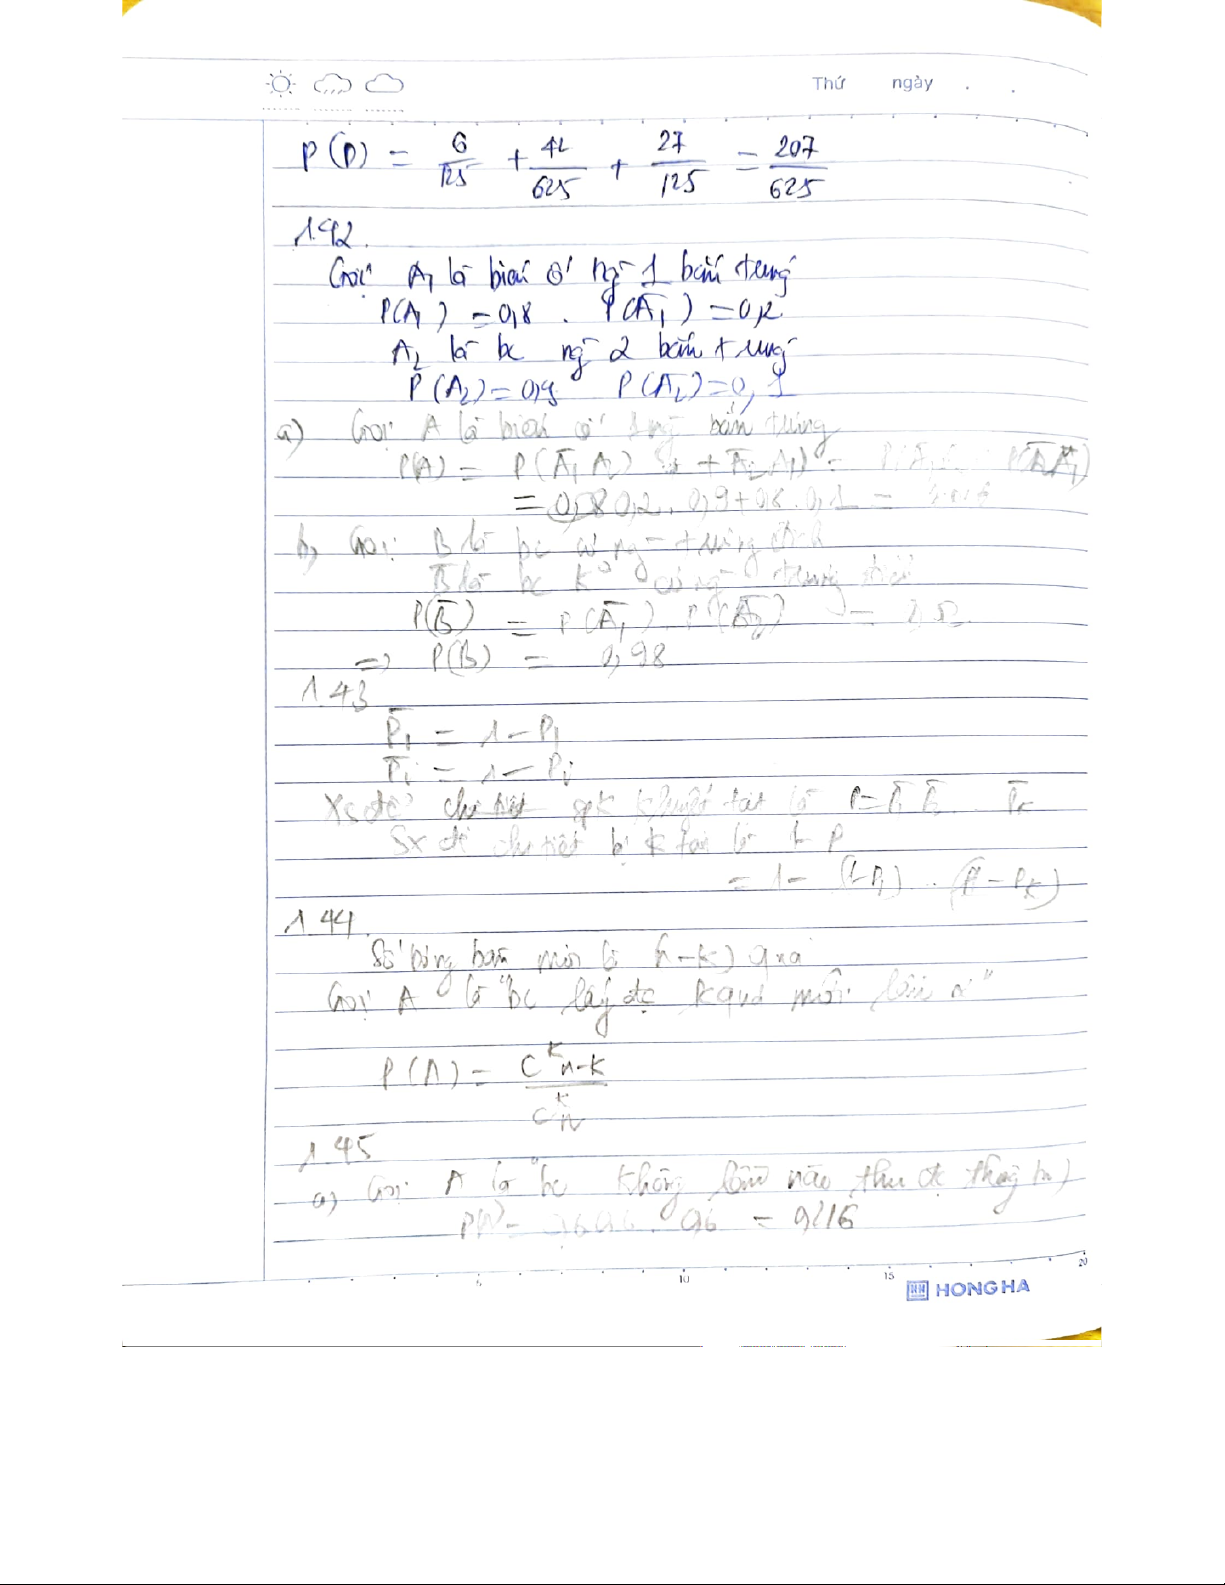 Thứ ngày . .
P(D) = 6/125 + 42/625 + 27/125 = 207/625
1.42.
Gọi A₁ là biến cố ng 1 bắn trúng
P(A₁) = 0,8 . P(A̅₁) = 0,2
A₂ là bc ng 2 bắn trúng
P(A₂) = 0,9 P(A̅₂) = 0,1
a) Gọi A là biến cố 1 ng bắn trúng
P(A) = P(A̅₁A₂ + A̅₂A₁) =
= 0,2.0,9 + 0,8.0,1 =
b, Gọi B là bc có ng trúng đích
B̅ là bc k có ng trúng đích
P(B̅) = P(A̅₁) P(A̅₂) =
=> P(B) = 0,98
1.43
P̅₁ = 1 - P₁
P̅ᵢ = 1 - Pᵢ
Xs để chi tiết khuyết tật là P = P̅₁ P̅₂ P̅ₖ
Sx để chi tiết bị k tật là 1 - P
= 1 - (1-P₁) . (1 - Pₖ)
1.44.
Số bóng bàn mới là (n-k) quả
Gọi A là "bc lấy đc k quả mới lần"
P(A) = Cᵏn-k / Cᵏn
1.45
a) Gọi A là "bc không lần nào thu đc thông tin)
P(A) = 0,6 = 0,216
5 10 15 20
HONG HA